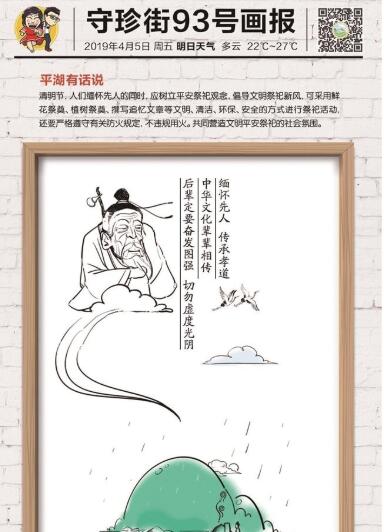 守珍街93号画报
2019年4月5日 周五 明日天气 多云 22℃~27℃
平湖有话说
清明节,人们缅怀先人的同时,应树立平安祭祀观念,倡导文明祭祀新风,可采用鲜
花祭奠、植树祭奠、撰写追忆文章等文明、清洁、环保、安全的方式进行祭祀活动,
还要严格遵守有关防火规定,不违规用火。共同营造文明平安祭祀的社会氛围。
缅怀先人 传承孝道
中华文化辈辈相传
后辈定要奋发图强 切勿虚度光阴